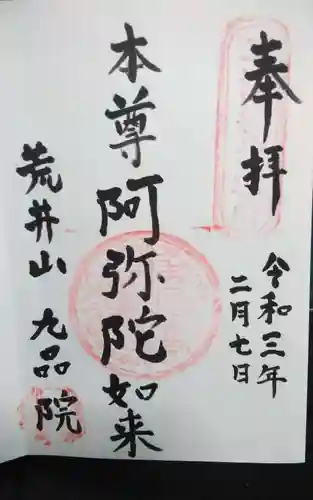 奉拝
令和三年
二月七日
本尊阿弥陀如来
荒井山
九品院